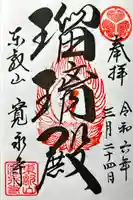 奉拝
令和六年
三月二十四日
瑠璃殿
東叡山
寛永寺